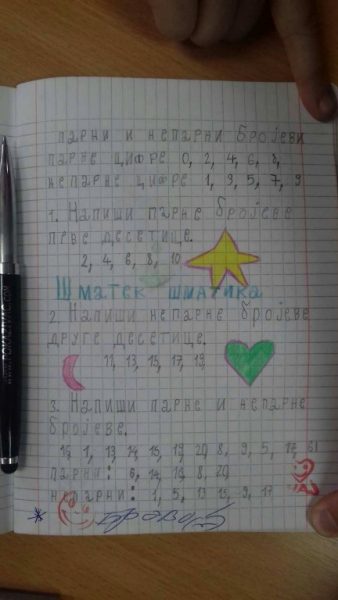 парни и непарни бројеви
парне цифре 0, 2, 4, 6, 8,
непарне цифре 1, 3, 5, 7, 9
1. Напиши парне бројеве
прве десетице.
2, 4, 6, 8, 10
Шматек шматика
2. Напиши непарне бројеве
друге десетице.
11, 13, 15, 17, 19,
3. Напиши парне и непарне
бројеве.
1, 13, 14, 15, 19, 20, 8, 9, 5, 17, 6
парни: 6, 14, 8, 20
непарни: 1, 5, 13, 15, 9, 17
Браво